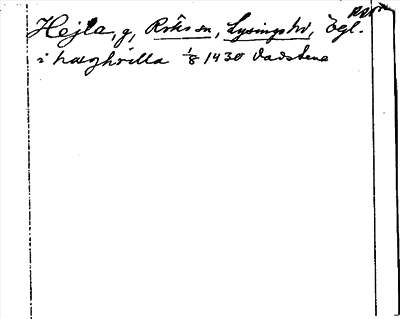 Hejla, g, Röks sn, Lysings hd, Ögl.
i haghvilla 1/8 1430 Vadstena